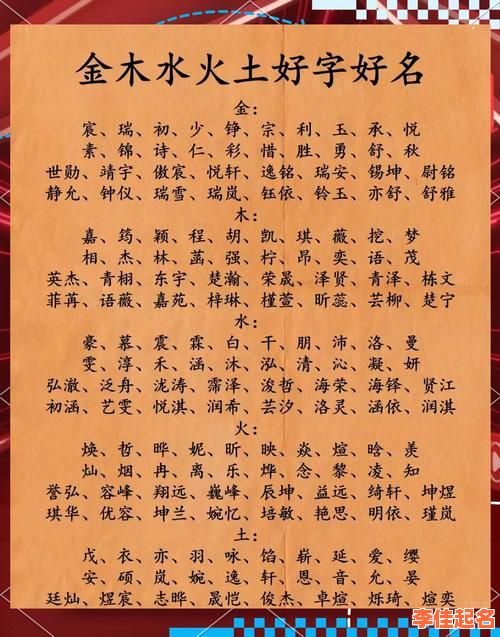 金木水火土好字好名
金：
宸、瑞、初、少、铮、宗、利、玉、承、悦
素、锦、诗、仁、彩、惜、胜、勇、舒、秋
世勋、靖宇、傲宸、悦轩、逸铭、瑞安、锡坤、尉铭
静允、钟仪、瑞雪、瑞岚、钰依、铃玉、亦舒、舒雅
木：
嘉、筠、颖、程、胡、凯、琪、薇、挖、梦
相、杰、林、菡、强、柠、昂、奕、语、茂
英杰、青栩、东宇、楚瀚、荣晟、泽贤、青泽、栋文
菲苒、语薇、嘉苑、梓琳、槿萱、昕蕊、芸柳、楚宁
水：
豪、慕、震、霖、白、干、朋、沛、洛、曼
雯、淳、禾、涵、沐、泓、清、沁、凝、妍
弘澈、泛舟、泷涛、霈泽、浚哲、海荣、海铎、贤江
初涵、艺雯、悦淇、润希、芸汐、洛灵、涵依、润淇
火：
焕、哲、晔、妮、昕、映、焱、煊、晗、羡
灿、烟、冉、离、乐、烨、念、黎、凌、知
誉弘、容峰、翔远、巍峰、辰坤、益远、绮轩、坤煜
琪华、优容、坤兰、婉忆、培敏、艳思、明依、瑾岚
土：
戊、衣、亦、羽、咏、馅、崭、延、爱、缨
安、硕、岚、婉、逸、轩、恩、音、允、晏
廷灿、煜宸、志晔、晟恺、俊杰、卓煊、烁琦、煊奕
李佳起名